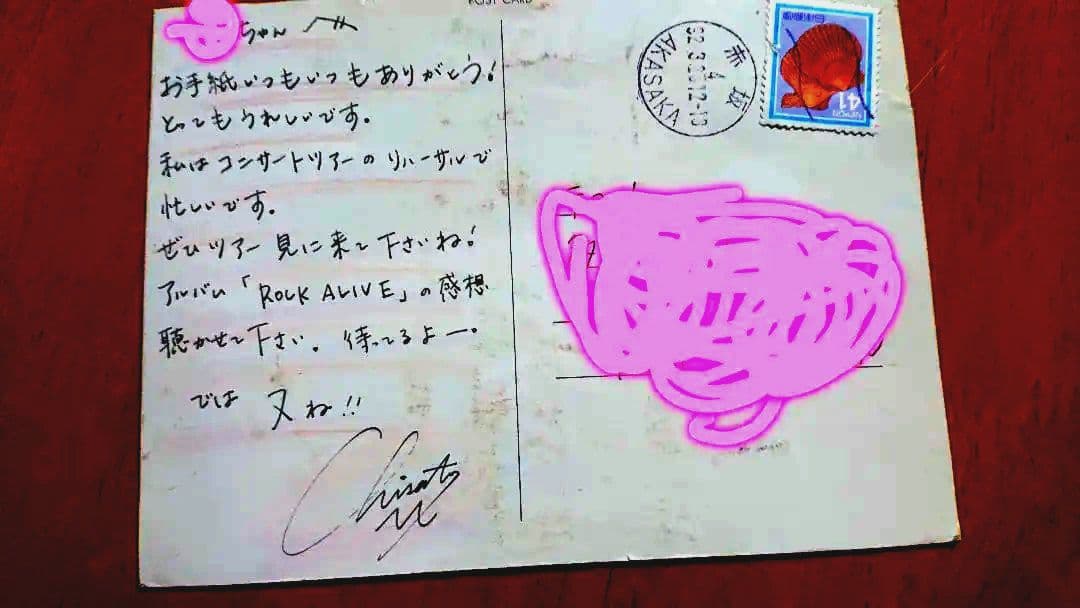 POST CARD
ちゃん へ
お手紙いつもいつもありがとう!
とってもうれしいです。
私はコンサートツアーのリハーサルで
忙しいです。
ぜひツアー見に来て下さいね!
アルバム「ROCK ALIVE」の感想
聴かせて下さい。待ってるよー。
では 又ね!!
Chisato M
赤坂
AKASAKA
日本郵便
41
NIPPON